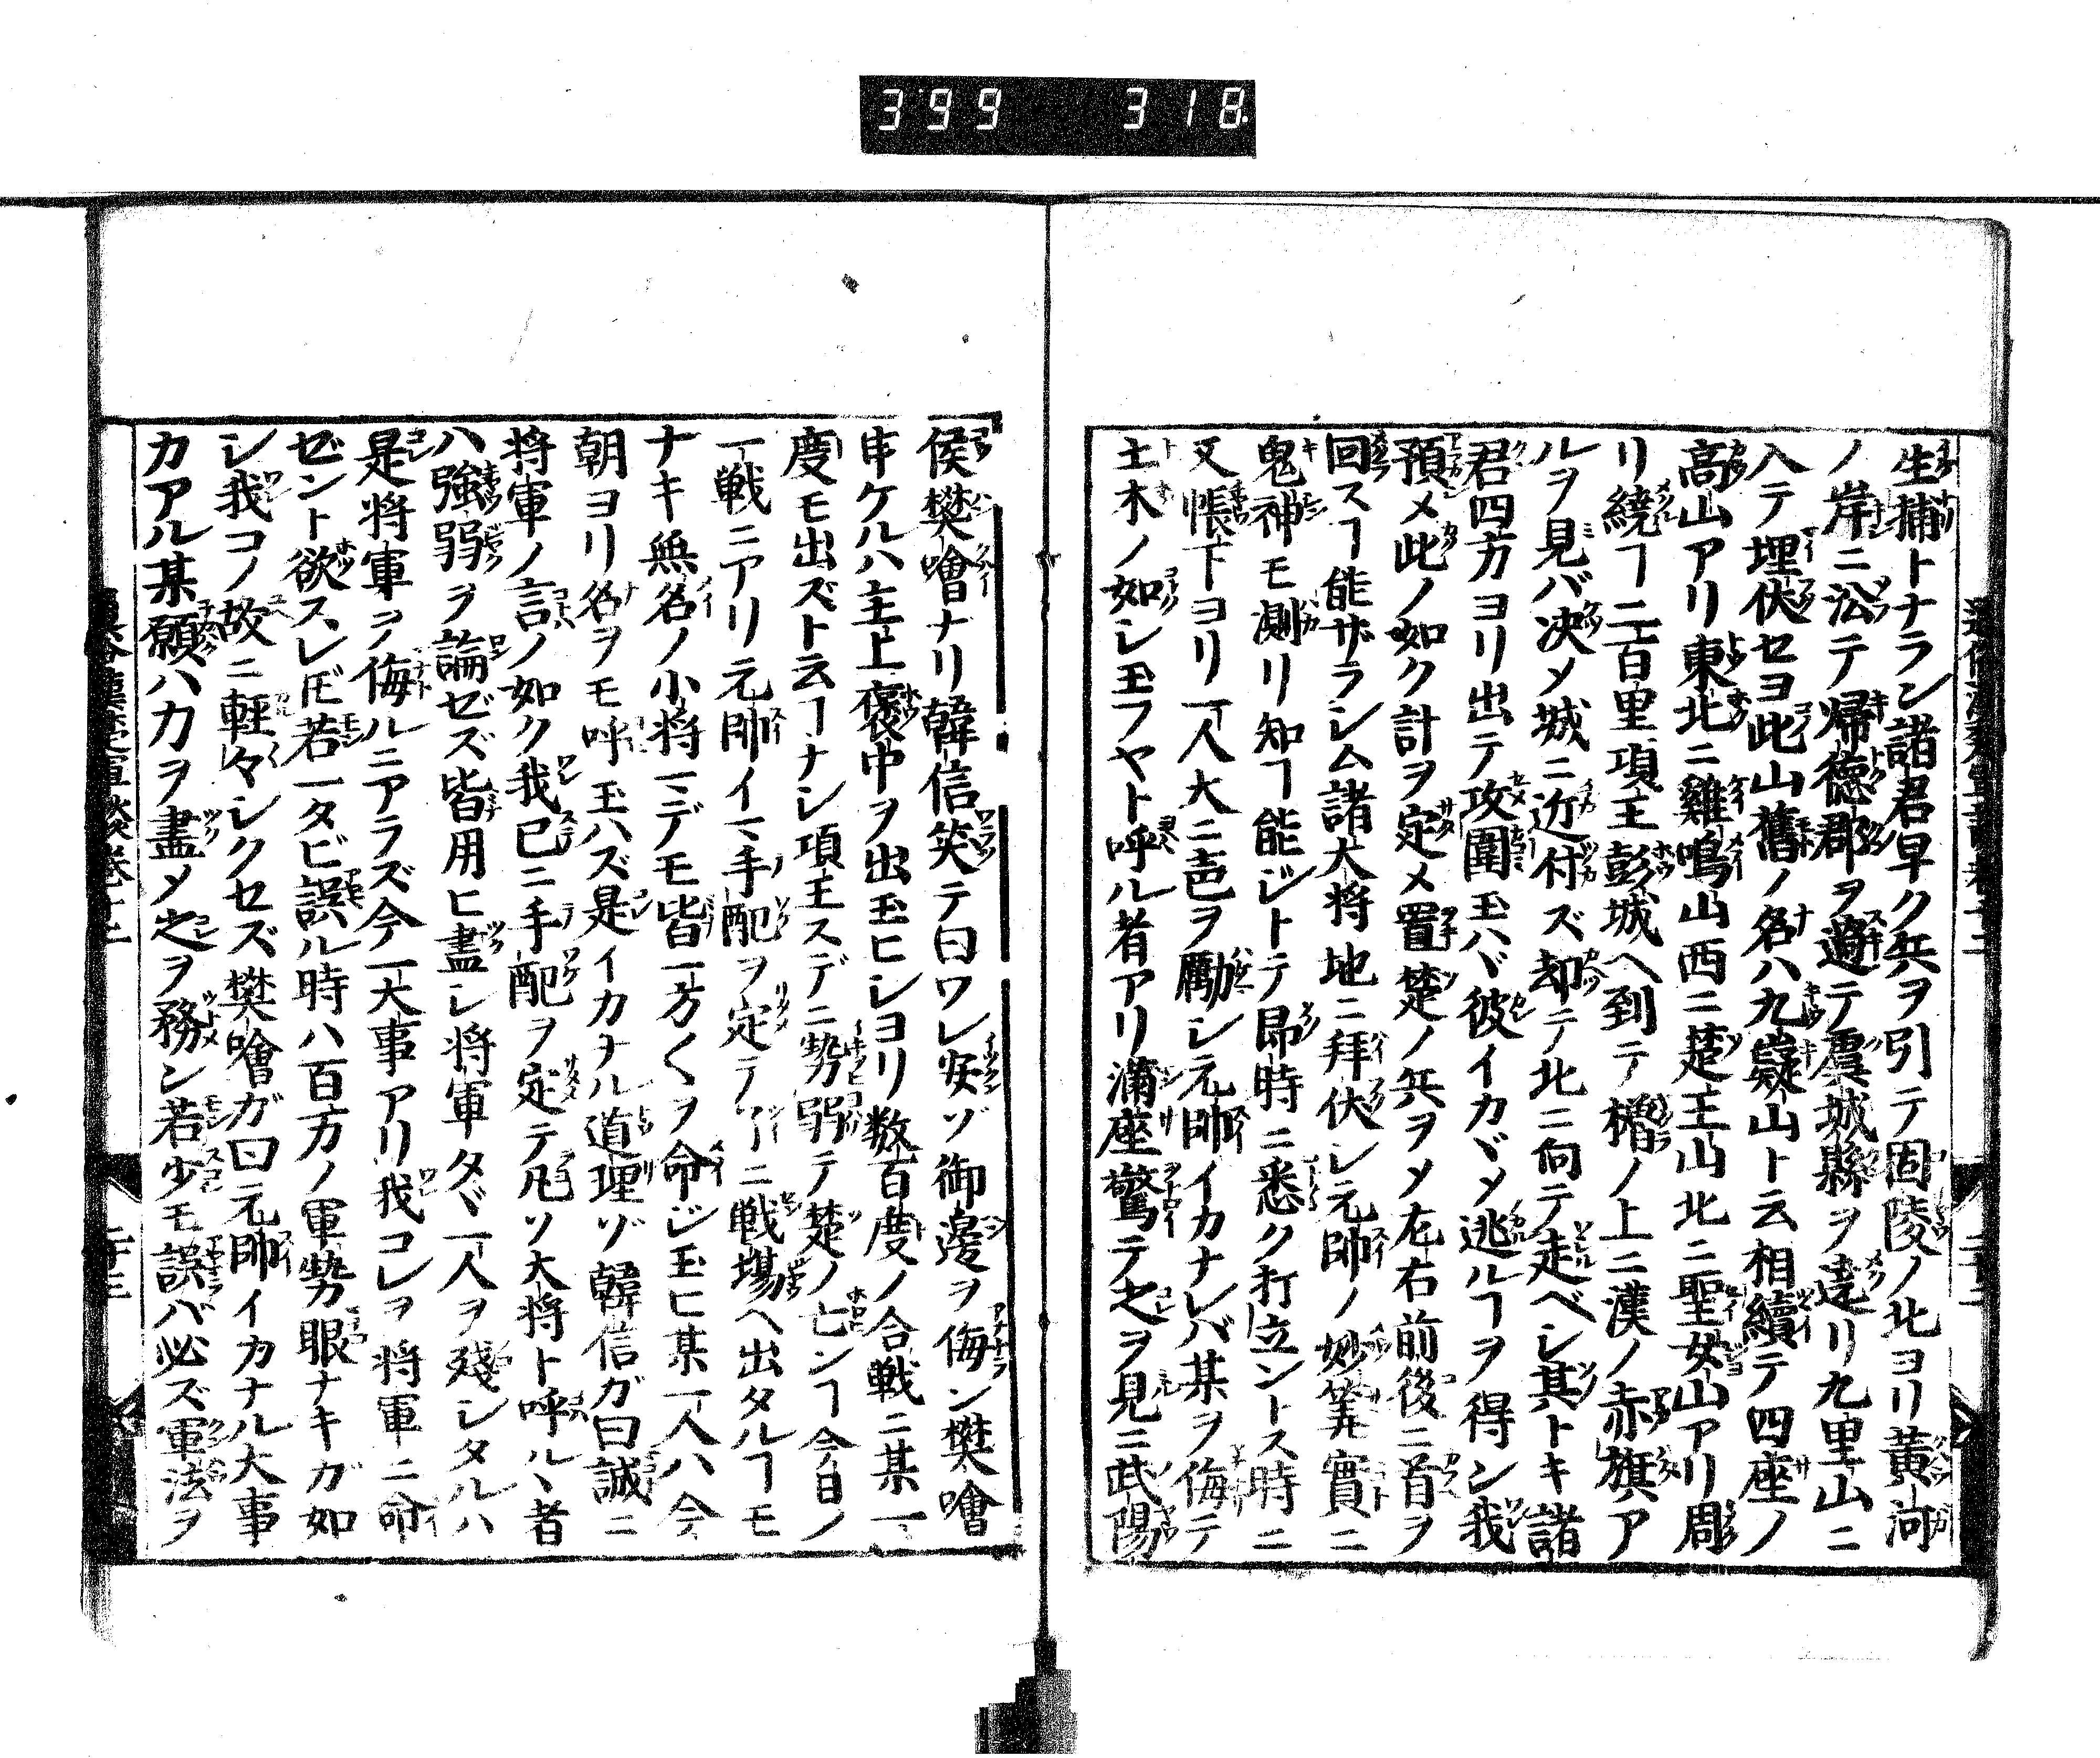 399 318
生捕トナラン諸君早ク兵ヲ引テ固陵ノ北ヨリ黄河
ノ岸ニ㳂テ帰德郡ヲ過テ虞城縣ヲ遶リ九里山ニ
入テ埋伏セヨ此山舊ノ名ハ九嶷山ト云相續テ四座ノ
高山アリ東北ニ雞鳴山西ニ楚王山北ニ聖女山アリ周
リ繞ヿ二百里項王彭城ヘ到テ櫓ノ上ニ漢ノ赤旗ア
ルヲ見バ决メ城ニ近付ズ却テ北ニ向テ走ベシ其トキ諸
君四方ヨリ出テ攻圍玉ハヾ彼イカヾメ逃ルヿヲ得ン我
預メ此ノ如ク計ヲ定メ置楚ノ兵ヲメ左右前後ニ首ヲ
回スヿ能ザラシム諸大将地ニ拜伏シ元帥ノ妙筭實ニ
鬼神モ測リ知ヿ能ジトテ即時ニ悉ク打立ントス時ニ
又帳下ヨリ一人大ニ声ヲ勵シ元帥イカナレバ某ヲ侮テ
土木ノ如シ玉フヤト呼ル者アリ滿座驚テ之ヲ見ニ武陽
侯樊噲ナリ韓信笑テ曰ワレ安ゾ御邊ヲ侮ン樊噲
申ケルハ主上褒中ヲ出玉ヒシヨリ数百度ノ合戦ニ某一
度モ出ズト云ヿナシ項王スデニ勢弱テ楚ノ亡ンヿ今日ノ
一戦ニアリ元帥イマ手配ヲ定テ了ニ戦場ヘ出タルヿモ
ナキ無名ノ小将マデモ皆一方〱ヲ命ジ玉ヒ某一人ハ今
朝ヨリ名ヲモ呼玉ハズ是イカナル道理ゾ韓信ガ曰誠ニ
将軍ノ言ノ如ク我已ニ手配ヲ定テ凡ソ大将ト呼ルヽ者
ハ強弱ヲ論ゼズ皆用ヒ盡シ将軍タヾ一人ヲ殘シタルハ
是将軍ヲ侮ルニアラズ今一大事アリ我コレヲ将軍ニ命
ゼント欲スレ𪜈若一タビ誤ル時ハ百万ノ軍勢眼ナキガ如
シ我コノ故ニ軽々シクセズ樊噲ガ曰元帥イカナル大事
カアル某願ハ力ヲ盡メ之ヲ務ン若少モ誤バ必ズ軍法ヲ